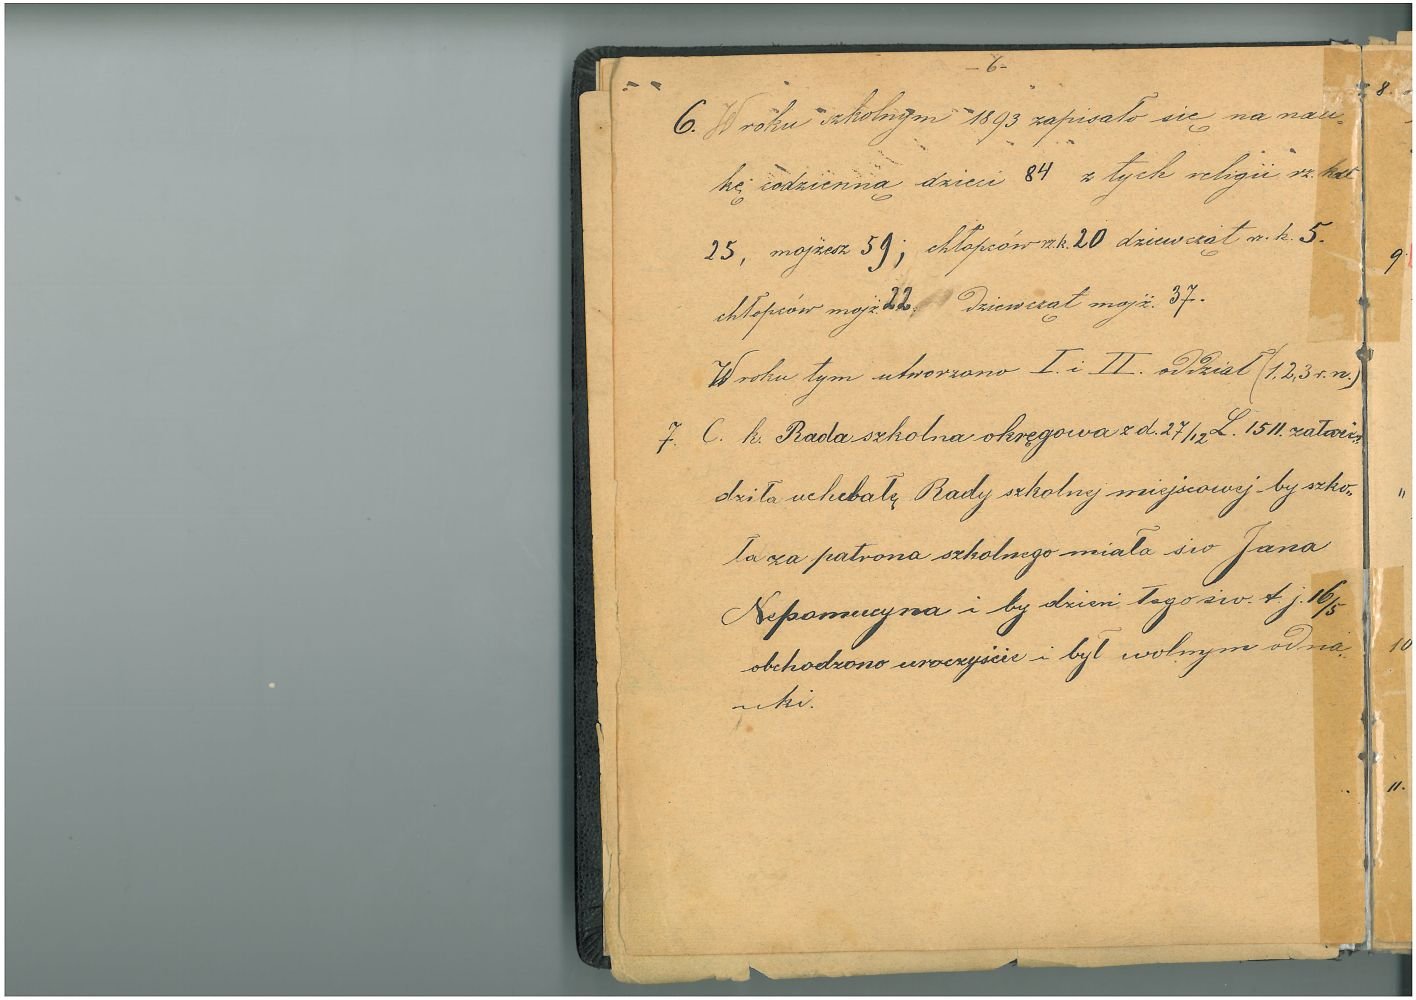 - 6 -
6. W roku szkolnym 1893 zapisało się na nau„
kę codzienną dzieci 84 z tych religii rz. kat
25, mojżesz 59; chłopców rz. k. 20 dziewcząt rz. k. 5.
chłopców mojż. 22. Dziewcząt mojż. 37.
W roku tym utworzono I. i II. oddział (1, 2, 3 r. n.)
7. C. k. Rada szkolna okręgowa z d. 27/12 L. 1511.
dziła uchwałę Rady szkolnej miejscowej by szko„
ła za patrona szkolnego miała św Jana
Nepomucyna i by dzień tego św. t j. 16/5
obchodzono uroczyście i był wolnym od na„
uki.
8.
9.
"
10
11.